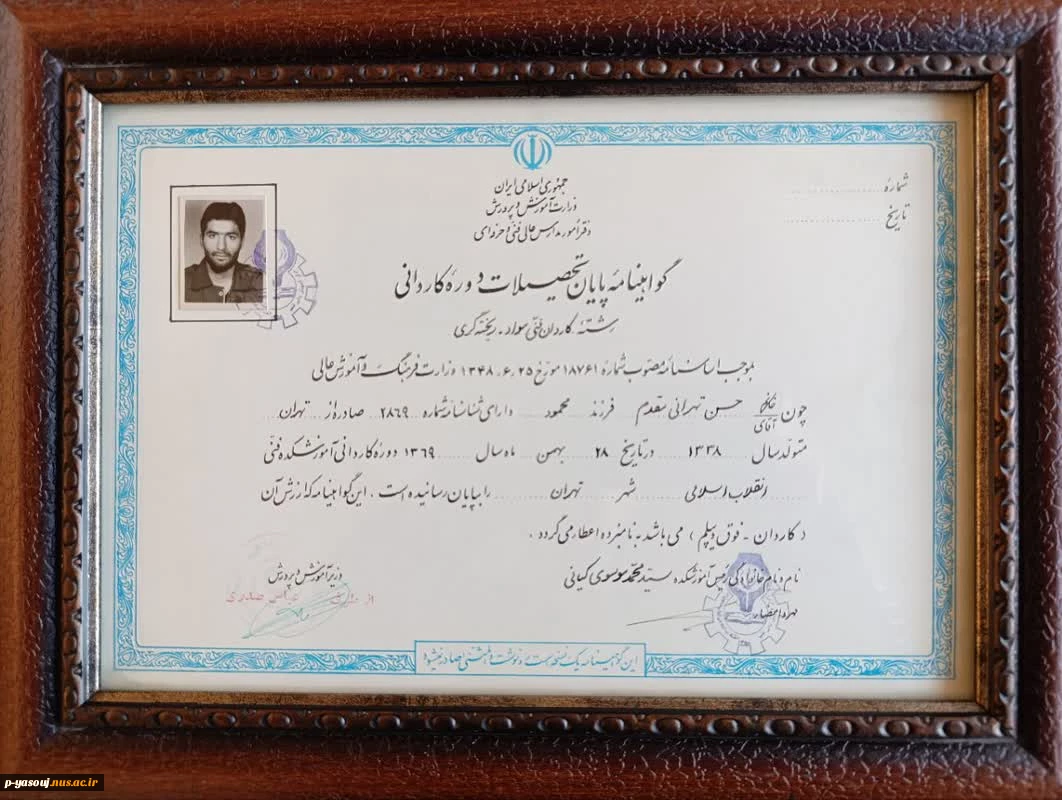 شمارهٔ
تاریخ
جمهوری اسلامی ایران
وزارت آموزش و پرورش
دفتر امور مدارس عالی فنی و حرفه‌ای
گواهینامهٔ پایان تحصیلات دورهٔ کاردانی
رشتهٔ کاردان فنی مواد - ریخته گری
بموجب اساسنامهٔ مصوب شمارهٔ ۱۸۷۶۱ مورّخ ۲۵ .۶ .۱۳۴۸ وزارت فرهنگ و آموزش عالی
چون خانم آقای حسن تهرانی مقدم فرزند محمود دارای شناسنامهٔ شماره ۲۸۶۹ صادره از تهران
متولّد سال ۱۳۳۸ در تاریخ ۲۸ بهمن ماه سال ۱۳۶۹ دورهٔ کاردانی آموزشکده فنّی
انقلاب اسلامی شهر تهران را بپایان رسانیده است ، این گواهینامه که ارزش آن
( کاردان - فوق دیپلم ) می باشد به نامبرده اعطاء می گردد .
نام و نام خانوادگی رئیس آموزشکده سید محمد موسوی کیانی
مهر و امضاء
وزیر آموزش و پرورش
از طرف عباس صدری
این گواهینامه یک نسخه است و رونوشت یا المثنی صادر نمیشود
p-yasouj.nus.ac.ir